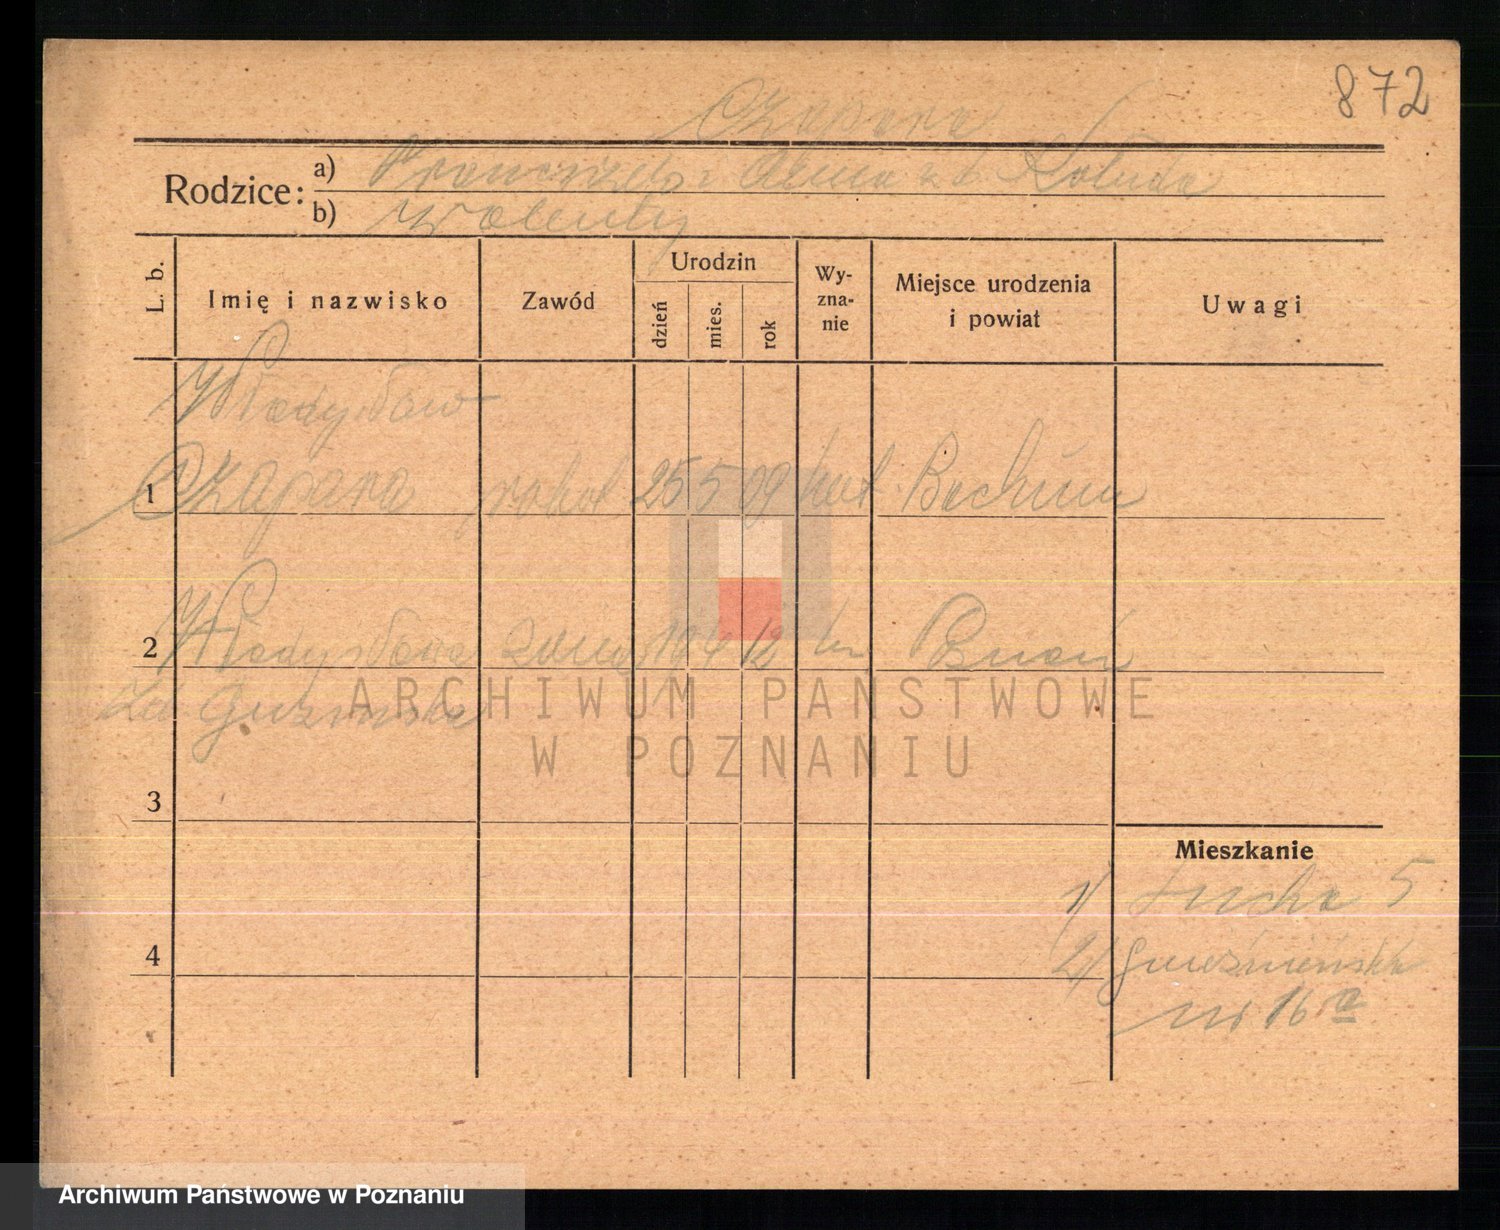 872
Czapara
Rodzice:
a) Franciszek i Anna z d. Kałuda
b) Walenty
L. b.
Imię i nazwisko
Zawód
Urodzin
dzień
mies.
rok
Wy-
zna-
nie
Miejsce urodzenia
i powiat
Uwagi
Władysław
1 Czapara robot 25 5 09 kat Bochum
2 Władysława 19 4 12
zd.
3
4
Mieszkanie
1/ 5
2/ Gnieźnieńska
nr 16 a
ARCHIWUM PAŃSTWOWE
W POZNANIU
Archiwum Państwowe w Poznaniu